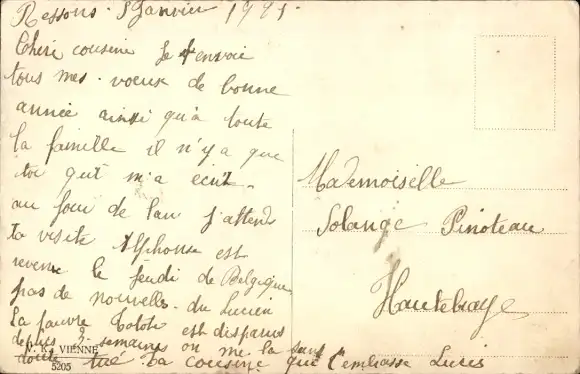 Ressons. 8 Janvier 1921.
Chère cousine Je t'envoie
tous mes voeux de bonne
année ainsi qu'à toute
la famille il n'y a que
toi qui m'a écrit.
au jour de l'an j'attend
ta visite Alphonse est
revenu le jeudi de Belgique
pas de nouvelle du Lucien
La pauvre est disparus
depuis 3 semaines on me la sans
doute tué. Ta cousine que t'embrasse
VIENNE
5205
Mademoiselle
Solange Pinoteau
Hautebraye